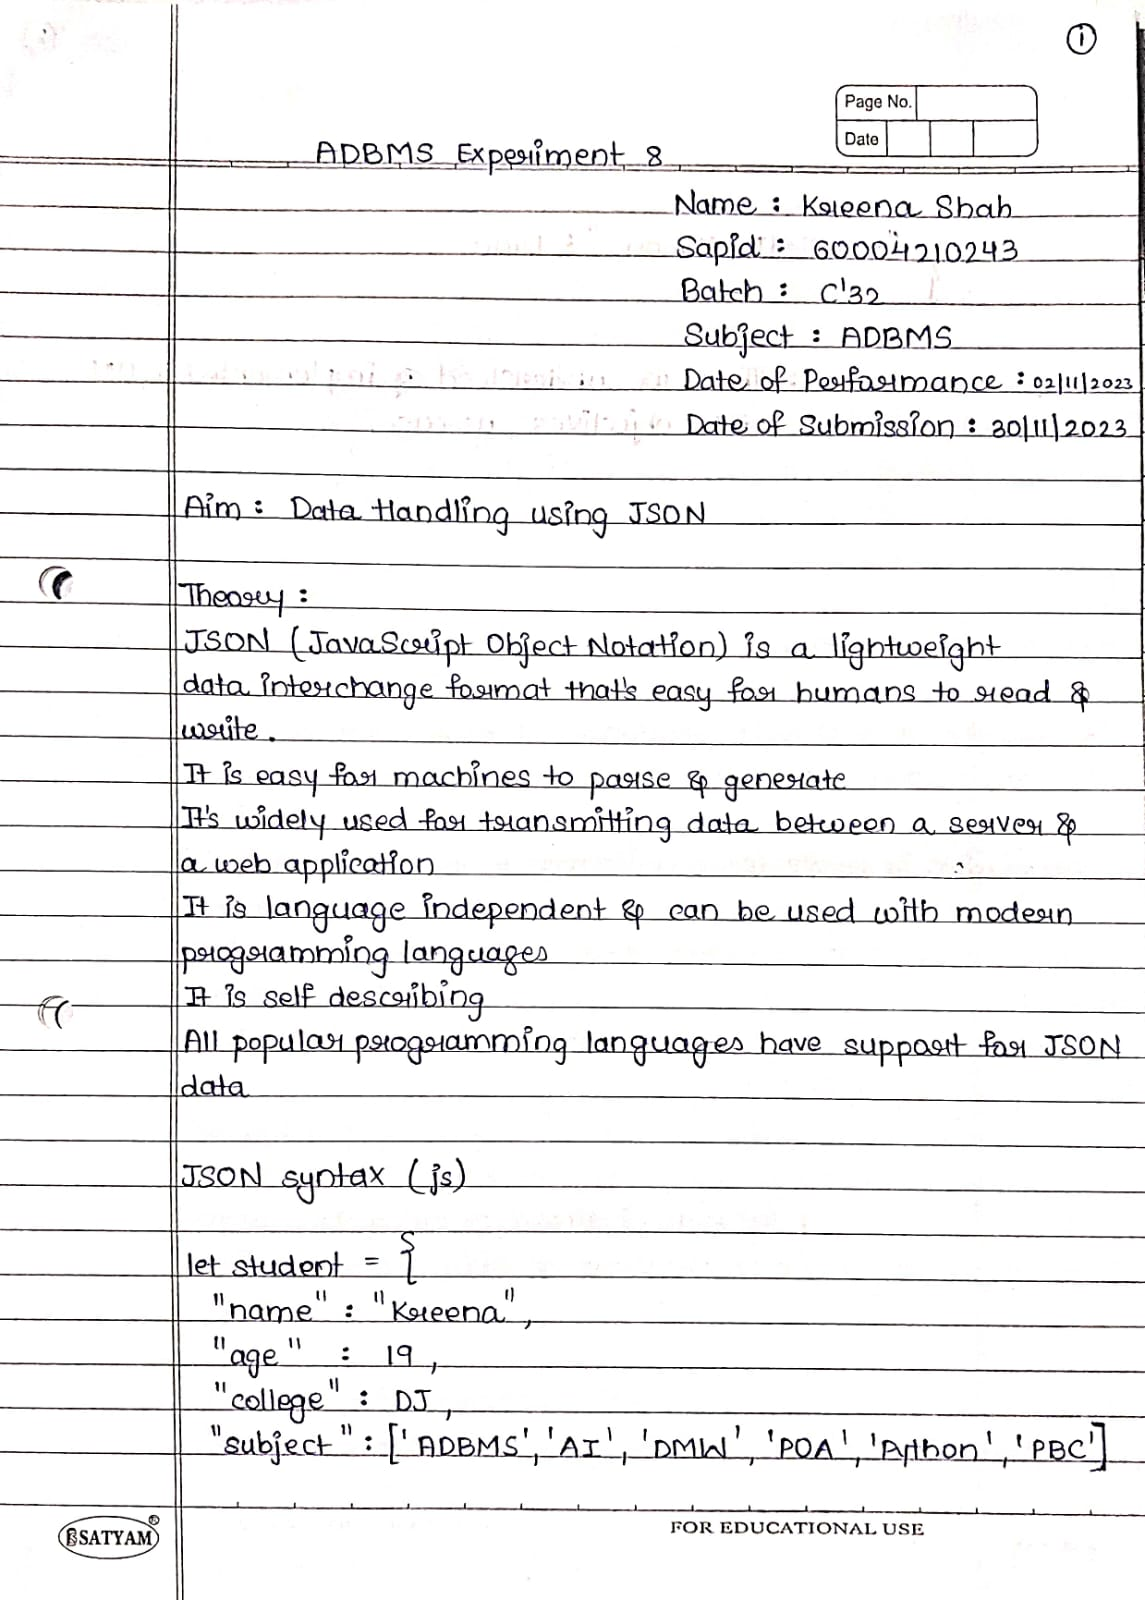 1
Page No.
Date
ADBMS Experiment 8
Name : Kreena Shah
Sapid : 60004210243
Batch : C'32
Subject : ADBMS
Date of Performance : 02/11/2023
Date of Submission : 30/11/2023
Aim : Data Handling using JSON
Theory :
JSON (JavaScript Object Notation) is a lightweight
data interchange format that's easy for humans to read &
write.
It is easy for machines to parse & generate
It's widely used for transmitting data between a server &
a web application
It is language independent & can be used with modern
programming languages
It is self describing
All popular programming languages have support for JSON
data
JSON syntax (js)
let student = {
"name" : "Kreena",
"age" : 19,
"college" : DJ,
"subject" : ['ADBMS', 'AI', 'DMW', 'POA', 'Python', 'PBC']
SATYAM®
FOR EDUCATIONAL USE